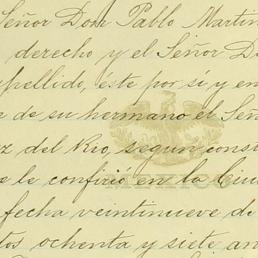 Señor Don Pablo Martin
derecho y el Señor D
apellido, éste por sí y en
de su hermano el Señ
z del Rio, segun cons
le confirió en la Ciu
fecha veintinueve de
tos ochenta y siete an
MEXICO